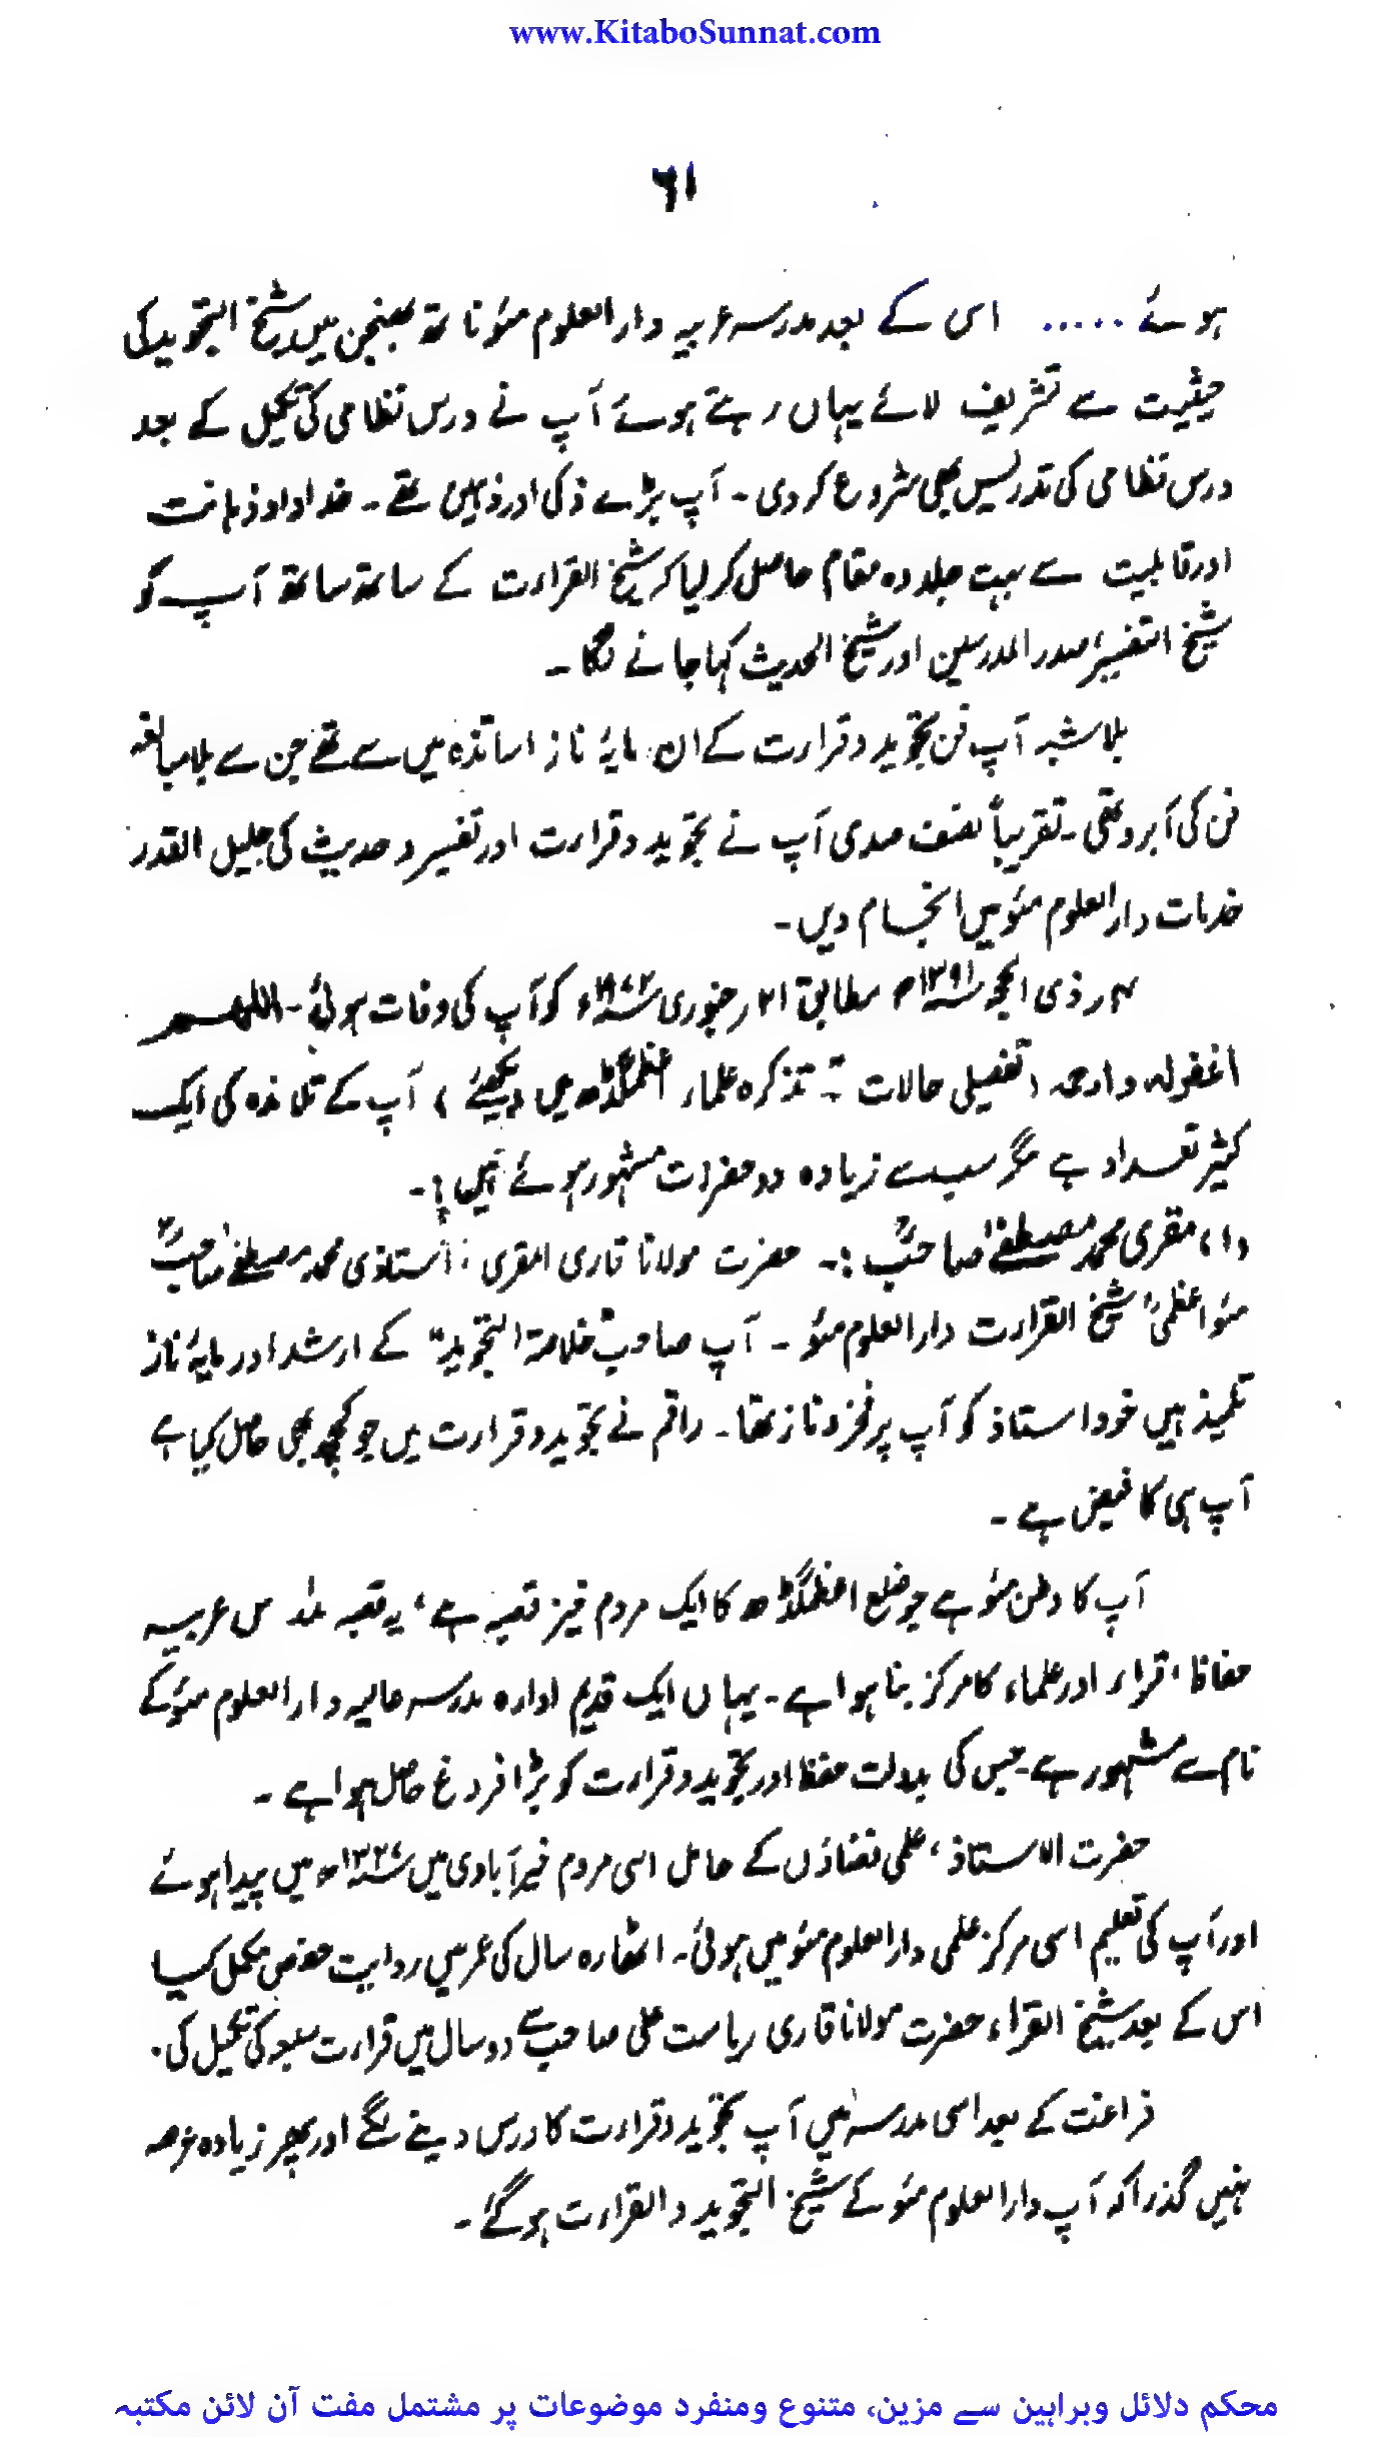 www.KitaboSunnat.com
٦١
ہوئے ..... اس کے بعد مدرسہ عربیہ دارالعلوم مئوناتھ بھنجن میں شیخ التجوید کی
حیثیت سے تشریف لائے یہاں رہتے ہوئے آپ نے درس نظامی کی تکمیل کے بعد
درس نظامی کی تدریس بھی شروع کر دی۔ آپ بڑے ذکی اور ذہین تھے۔ خداداد ذہانت
اور قابلیت سے بہت جلد وہ مقام حاصل کر لیا کہ شیخ القراءت کے ساتھ ساتھ آپ کو
شیخ التفسیر، صدر المدرسین اور شیخ الحدیث کہا جانے لگا۔
بلاشبہ آپ فن تجوید و قرارت کے ان مایۂ ناز اساتذہ میں سے تھے جن سے بلامبالغہ
فن کی آبرو تھی۔ تقریباً نصف صدی آپ نے تجوید و قرارت اور تفسیر و حدیث کی جلیل القدر
خدمات دارالعلوم مئو میں انجام دیں۔
۴؍ ذی الحجہ ۱۳۹۱ھ مطابق ۲۱؍ جنوری ۱۹۷۲ء کو آپ کی وفات ہوئی۔ اللھم
اغفرلہ وارحمہ (تفصیلی حالات تذکرہ علماء اعظمگڈھ میں دیکھئے) آپ کے تلامذہ کی ایک
کثیر تعداد ہے مگر سب سے زیادہ دو حضرات مشہور ہوئے ہیں:۔
(۱) مقری محمد مصطفےٰ صاحبؒ :۔ حضرت مولانا قاری المقری استاذی محمد مصطفےٰ صاحبؒ
مئو اعظمیؒ شیخ القرارت دارالعلوم مئو ۔ آپ صاحب "خلاصۃ التجوید" کے ارشد اور مایۂ ناز
تلمیذ ہیں خود استاذ کو آپ پر فخر و ناز تھا۔ راقم نے تجوید و قرارت میں جو کچھ بھی حاصل کیا ہے
آپ ہی کا فیض ہے ۔
آپ کا وطن مئو ہے جو ضلع اعظمگڈھ کا ایک مردم خیز قصبہ ہے، یہ قصبہ مدارس عربیہ
حفاظ، قراء اور علماء کا مرکز بنا ہوا ہے۔ یہاں ایک قدیم ادارہ مدرسہ عالیہ دارالعلوم مئو کے
نام سے مشہور ہے۔ جس کی بدولت حفظ اور تجوید و قرارت کو بڑا فروغ حاصل ہوا ہے ۔
حضرت الاستاذ، علمی فضاؤں کے حامل اسی مردم خیز آبادی میں ۱۳۲۷ھ میں پیدا ہوئے
اور آپ کی تعلیم اسی مرکز علمی دارالعلوم مئو میں ہوئی۔ اٹھارہ سال کی عمر میں روایت حفص مکمل کیا
اس کے بعد شیخ القراء حضرت مولانا قاری ریاست علی صاحب سے دو سال میں قرارت سبعہ کی تکمیل کی.
فراغت کے بعد اسی مدرسہ میں آپ تجوید و قرارت کا درس دینے لگے اور پھر زیادہ عرصہ
نہیں گذرا کہ آپ دارالعلوم مئو کے شیخ التجوید والقرارت ہو گئے۔
محکم دلائل وبراہین سے مزین، متنوع ومنفرد موضوعات پر مشتمل مفت آن لائن مکتبہ